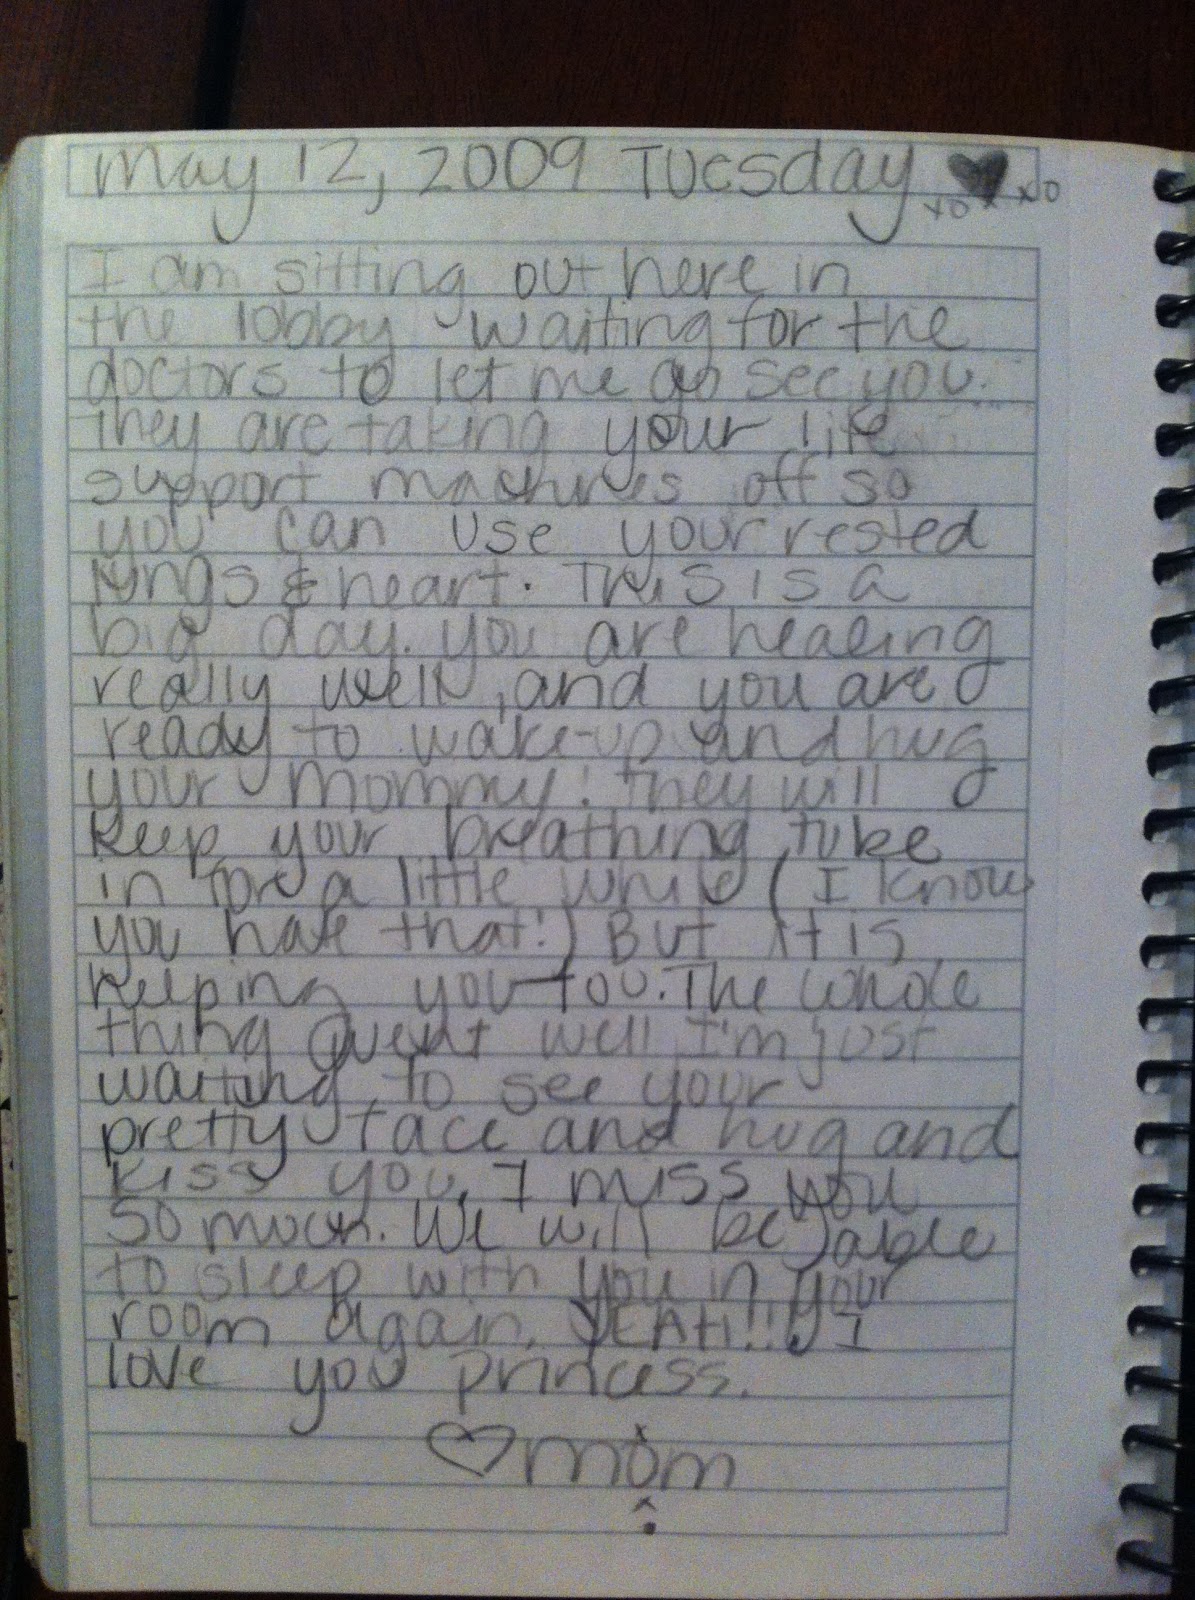 May 12, 2009 Tuesday ♥
xo x xo
I am sitting out here in
the lobby waiting for the
doctors to let me go see you.
They are taking your life
support machines off so
you can use your rested
lungs & heart. This is a
big day. You are healing
really well, and you are
ready to wake-up and hug
your mommy! They will
keep your breathing tube
in for a little while (I know
you hate that!) But it is
keeping you you. The whole
thing went well I'm just
waiting to see your
pretty face and hug and
kiss you. I miss you
so much. We will be able
to sleep with you in your
room again. YEAH!!! I
love you princess.
♡ mom